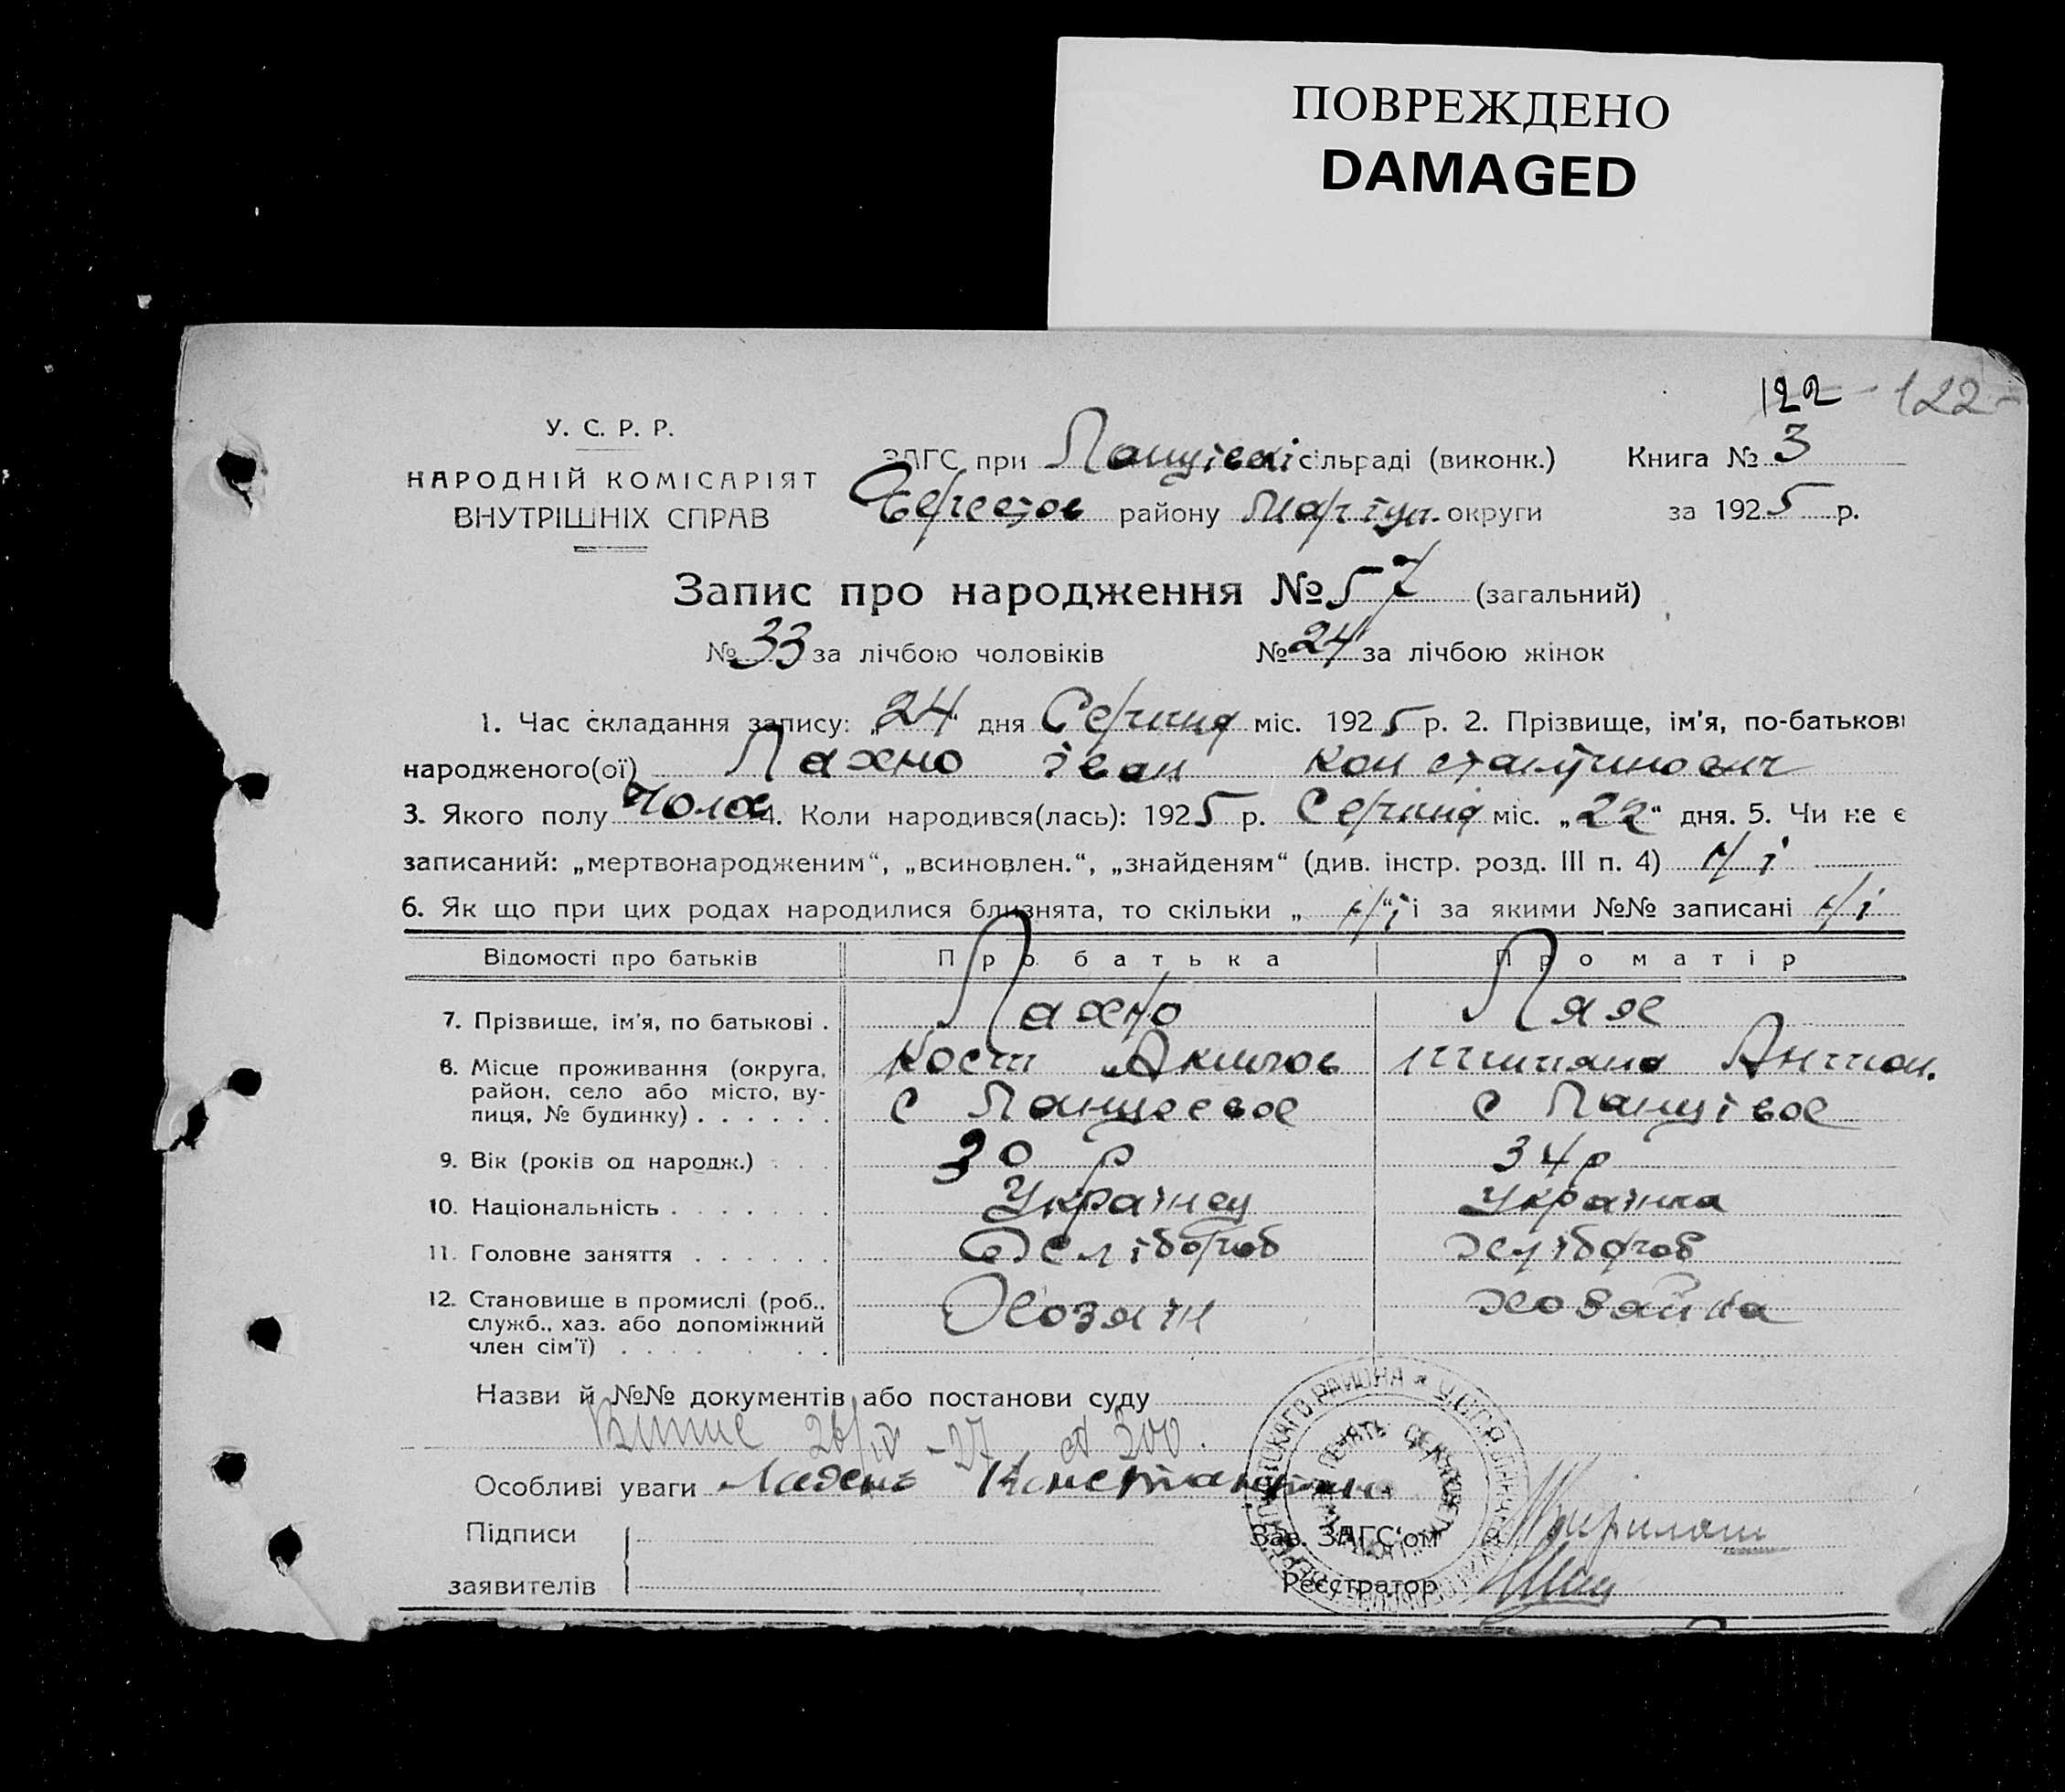 ПОВРЕЖДЕНО
DAMAGED
122 - 122 -
У. С. Р. Р.
НАРОДНІЙ КОМІСАРІЯТ
ВНУТРІШНІХ СПРАВ
ЗАГС при сільраді (виконк.) Книга № 3
району Маріуп. округи за 1925 р.
Запис про народження № 57 (загальний)
№ 33 за лічбою чоловіків № 24 за лічбою жінок
1. Час складання запису: „24“ дня Серпня міс. 1925 р. 2. Прізвище, ім'я, по-батькові
народженого(ої) Пахно Іван Константинович
3. Якого полу Чолов 4. Коли народився(лась): 1925 р. Серпня міс. „22“ дня. 5. Чи не є
записаний: „мертвонародженим“, „всиновлен.“, „знайденям“ (див. інстр. розд. III п. 4) Ні
6. Як що при цих родах народилися близнята, то скільки „Ні“ і за якими №№ записані Ні
Відомості про батьків Про батька Про матір
7. Прізвище, ім'я, по батькові . Пахно Пах
8. Місце проживання (округа, район, село або місто, вулиця, № будинку) . . . . . . Кост с с
9. Вік (років од народж.) . . . 30 р 34 р
10. Національність . . . . . . . Українец Українка
11. Головне заняття . . . . . . Хлібороб Хлібороб
12. Становище в промислі (роб., служб., хаз. або допоміжний член сім'ї) . . . . . . . . Хозяїн хозяйка
Назви й №№ документів або постанови суду
26/IV - 27 300.
Особливі уваги Константин
Підписи Зав. ЗАГС'ом
заявителів Реєстратор